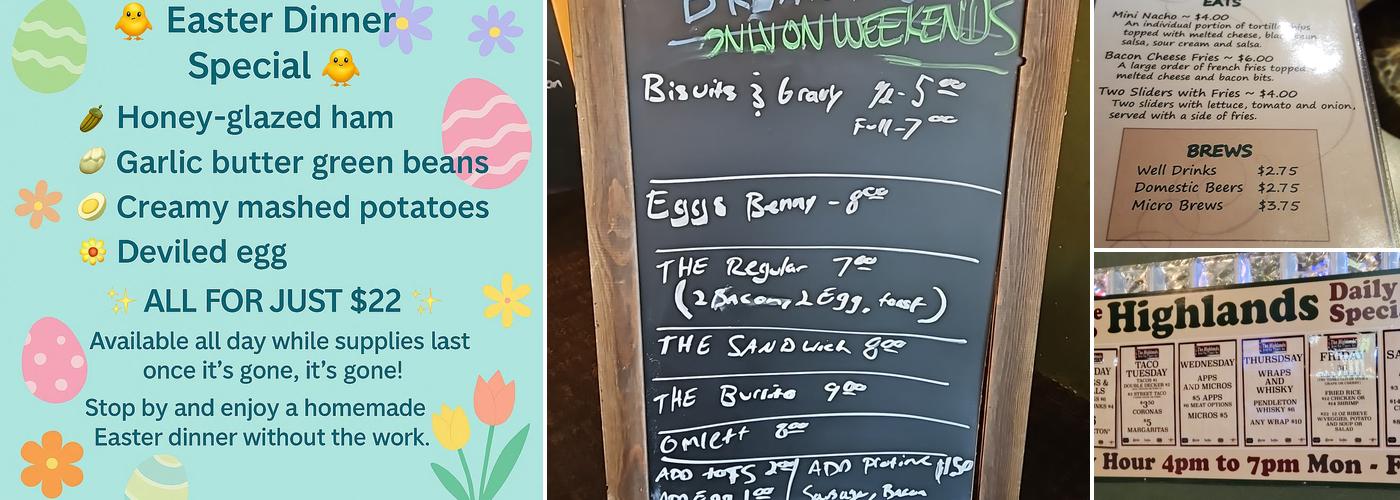 Easter Dinner
Special
Honey-glazed ham
Garlic butter green beans
Creamy mashed potatoes
Deviled egg
ALL FOR JUST $22
Available all day while supplies last
once it's gone, it's gone!
Stop by and enjoy a homemade
Easter dinner without the work.
ONLY ON WEEKENDS
Biscuits & Gravy 1/2 - 5 00
Full - 7 00
Eggs Benny - 8 00
THE Regular 7 00
(2 Bacon, 2 Egg, toast)
THE SANDwich 8 00
THE Burrito 9 00
Omlett 8 00
ADD
ADD Protine $1.50
ADD Egg 1 00
Sausage, Bacon
EATS
Mini Nacho ~ $4.00
An individual portion of tortilla chips
topped with melted cheese, black bean
salsa, sour cream and salsa.
Bacon Cheese Fries ~ $6.00
A large order of french fries topped
melted cheese and bacon bits.
Two Sliders with Fries ~ $4.00
Two sliders with lettuce, tomato and onion,
served with a side of fries.
BREWS
Well Drinks $2.75
Domestic Beers $2.75
Micro Brews $3.75
Highlands Daily
TACO
TUESDAY
TACOS $1
DOUBLE DECKER $2
$3 STREET TACO
$3.50
CORONAS
$5
MARGARITAS
WEDNESDAY
APPS
AND MICROS
$5 APPS
MICROS $5
THURSDSAY
WRAPS
AND
WHISKY
PENDLETON
WHISKY $6
ANY WRAP $10
FRIDAY
FRIED RICE
$12 CHICKEN OR
$14 SHRIMP
12 OZ RIBEYE
W/VEGGIES, POTATO
AND SOUP OR
SALAD
Hour 4pm to 7pm Mon - F